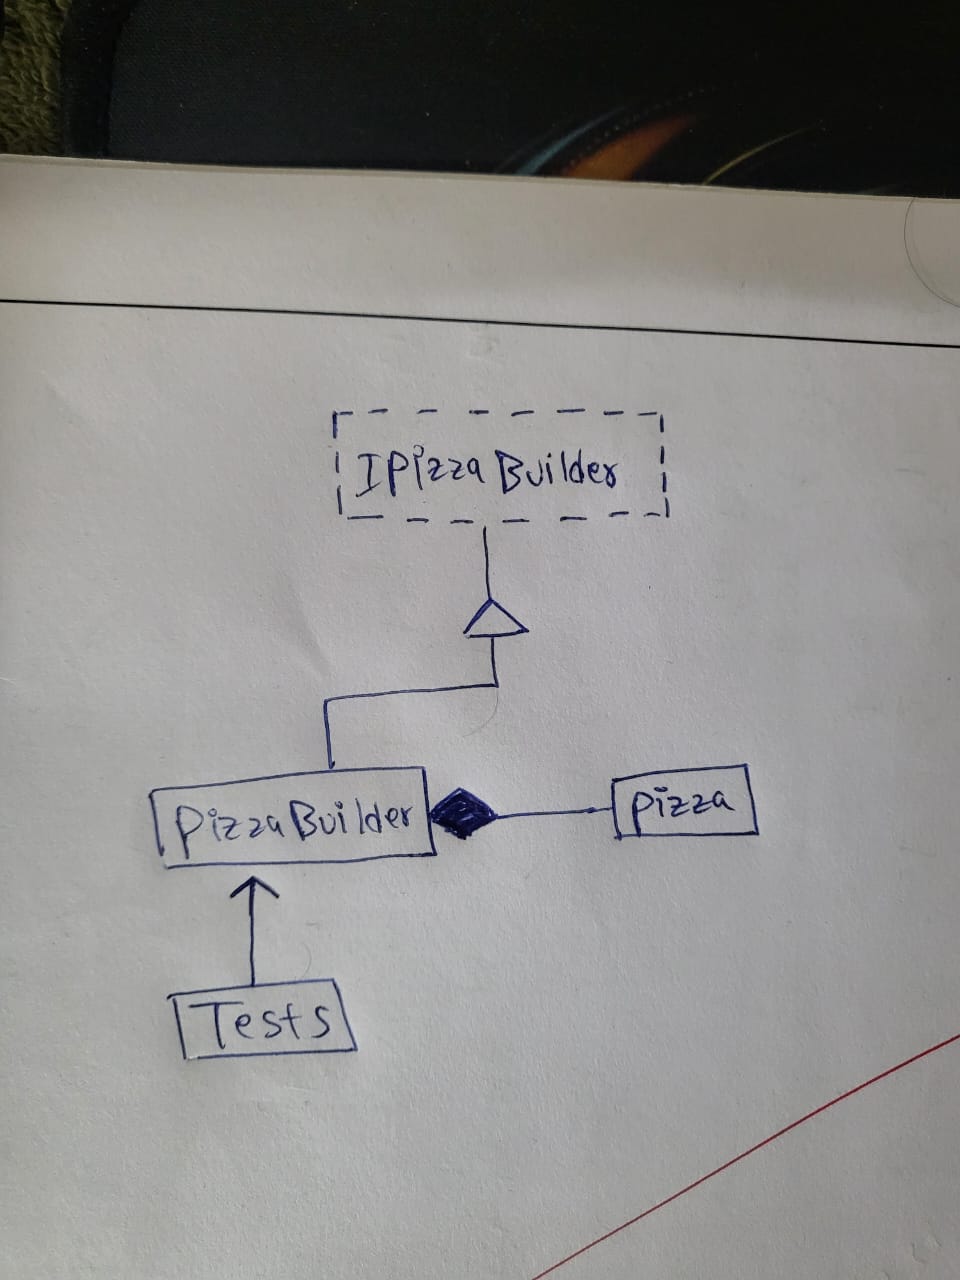 IPizzaBuilder
PizzaBuilder
Pizza
Tests